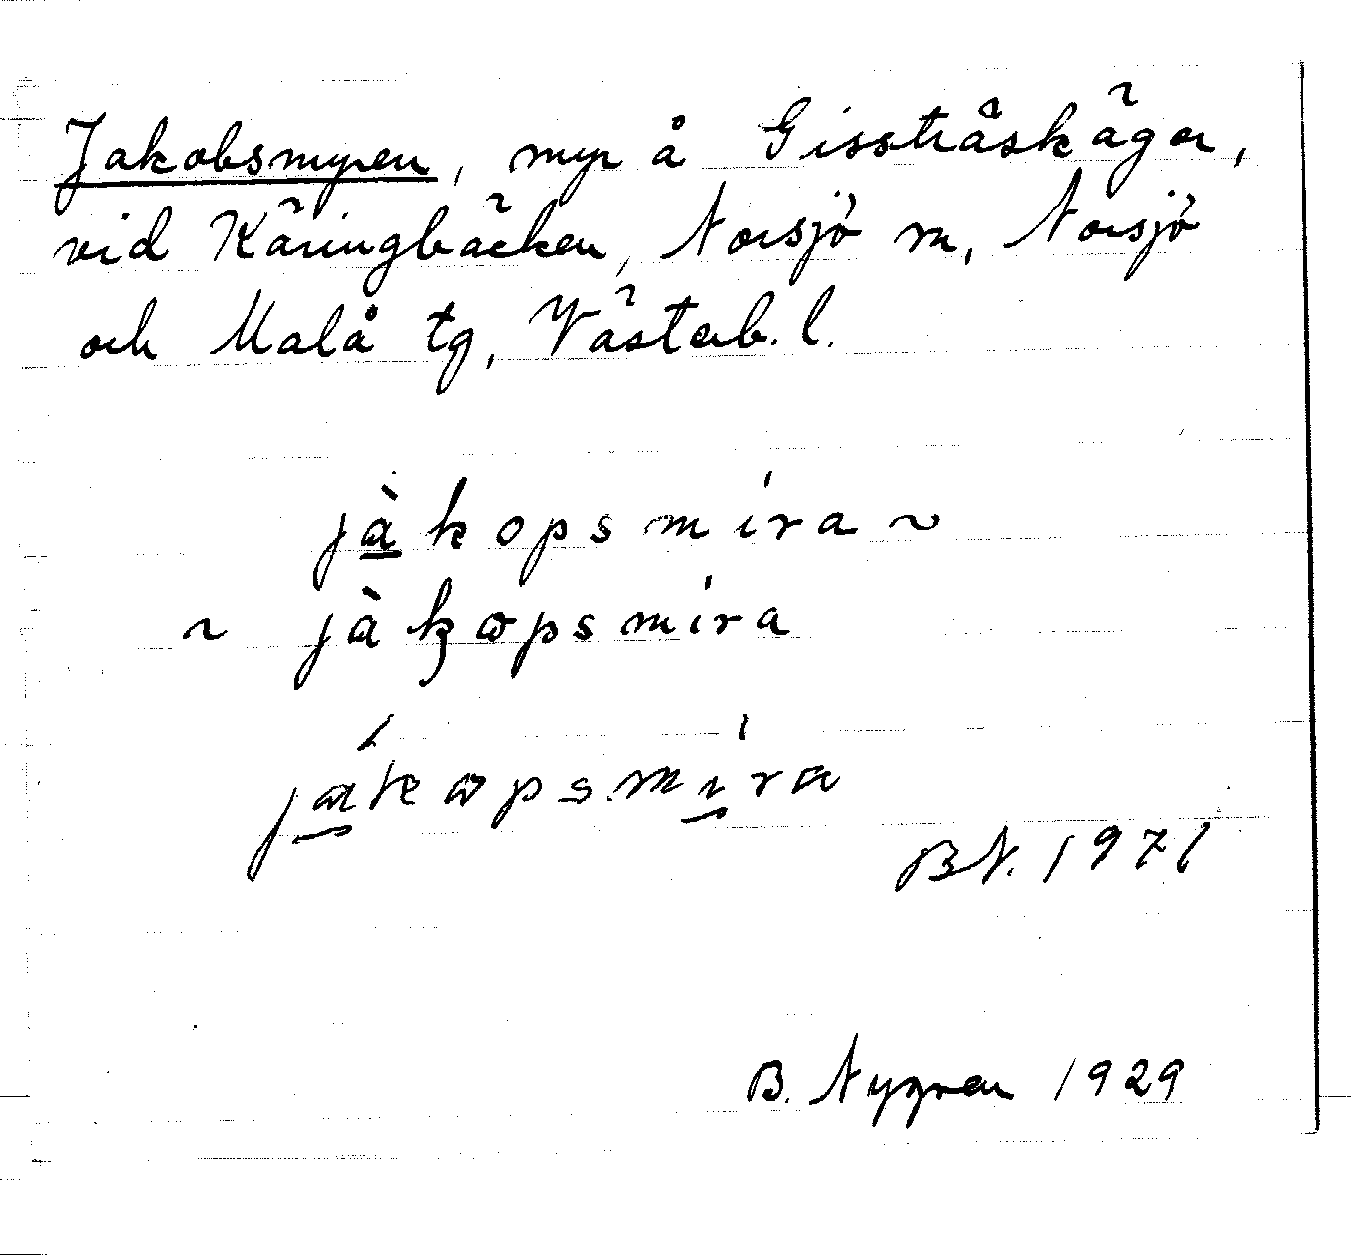 Jakobsmyren, myr å Gissträskägor,
vid Käringbäcken, Norsjö sn, Norsjö
och Malå tg, Västerb. l.
jàkopsmíra ~
~ jàk̡ɷpsmíra
jákɷpsmíra
BN. 1971
B. Nygren 1929